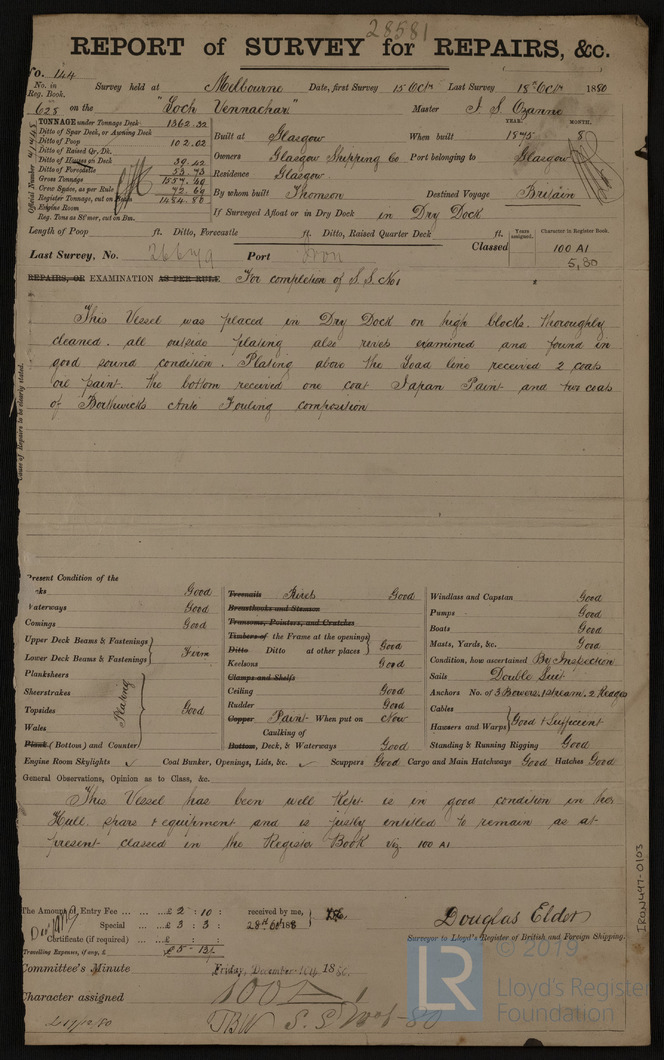 28581
REPORT of SURVEY for REPAIRS, &c.
No. 144
No. in Reg. Book. Survey held at Melbourne Date, first Survey 15 Octr Last Survey 18th Octr 1880
628 on the "Loch Vennachar" Master J. S. Ozanne
TONNAGE under Tonnage Deck 1362.32
Ditto of Spar Deck, or Awning Deck
Ditto of Poop 102.02
Ditto of Raised Qr. Dk.
Ditto of Houses on Deck 39.42
Ditto of Forecastle 53.73
Gross Tonnage 1557.49
Crew Space, as per Rule 72.69
Register Tonnage, cut on Beam 1484.80
Engine Room
Reg. Tons as St'mer, cut on Bm.
Official Number
Built at Glasgow When built YEAR. 1875 MONTH. 8
Owners Glasgow Shipping Co Port belonging to Glasgow
Residence Glasgow
By whom built Thomson Destined Voyage Britain
If Surveyed Afloat or in Dry Dock in Dry Dock
Length of Poop ft. Ditto, Forecastle ft. Ditto, Raised Quarter Deck ft.
Years assigned. Character in Register Book.
Last Survey, No. Port Iron Classed 100 A1
5,80
REPAIRS, OR EXAMINATION AS PER RULE For completion of S.S. No 1
This Vessel was placed in Dry Dock on high blocks. thoroughly
cleaned. all outside plating also rivets examined and found in
good sound condition. Plating above the Load line received 2 coats
oil paint. the bottom received one coat Japan Paint and two coats
of Borthwicks Anti Fouling composition
Cause of Repairs to be clearly stated.
Present Condition of the
cks Good
Waterways Good
Comings Good
Upper Deck Beams & Fastenings
Lower Deck Beams & Fastenings Firm
Planksheers
Sheerstrakes
Topsides Plating Good
Wales
Plank (Bottom) and Counter
Treenails Rivets Good
Breasthooks and Stemson
Transoms, Pointers, and Crutches
Timbers of the Frame at the openings
Ditto Ditto at other places Good
Keelsons Good
Clamps and Shelfs
Ceiling Good
Rudder Good
Copper Paint When put on Now
Caulking of
Bottom, Deck, & Waterways Good
Windlass and Capstan Good
Pumps Good
Boats Good
Masts, Yards, &c. Good
Condition, how ascertained By Inspection
Sails Double Suit
Anchors No. of 3 Bowers. 1 Stream. 2 Kedges
Cables
Hawsers and Warps Good & Sufficient
Standing & Running Rigging Good
Engine Room Skylights ✓ Coal Bunker, Openings, Lids, &c. ✓ Scuppers Good Cargo and Main Hatchways Good Hatches Good
General Observations, Opinion as to Class, &c.
This Vessel has been well Kept is in good condition in her
Hull. spars & equipment and is justly entitled to remain as at
present classed in the Register Book viz 100 A1
The Amount of Entry Fee ... £ 2 : 10 : received by me,
Special ... £ 3 : 3 : 28th Oct 188
Certificate (if required) ... £ : :
Travelling Expenses, if any, £ £5 - 13/-
Douglas Elder
Surveyor to Lloyd's Register of British and Foreign Shipping.
Committee's Minute Friday, December 10th, 1880.
Character assigned 100 A 1
S.S. No 1-80
IRON497-0103
© 2019
LR
Lloyd's Register
Foundation